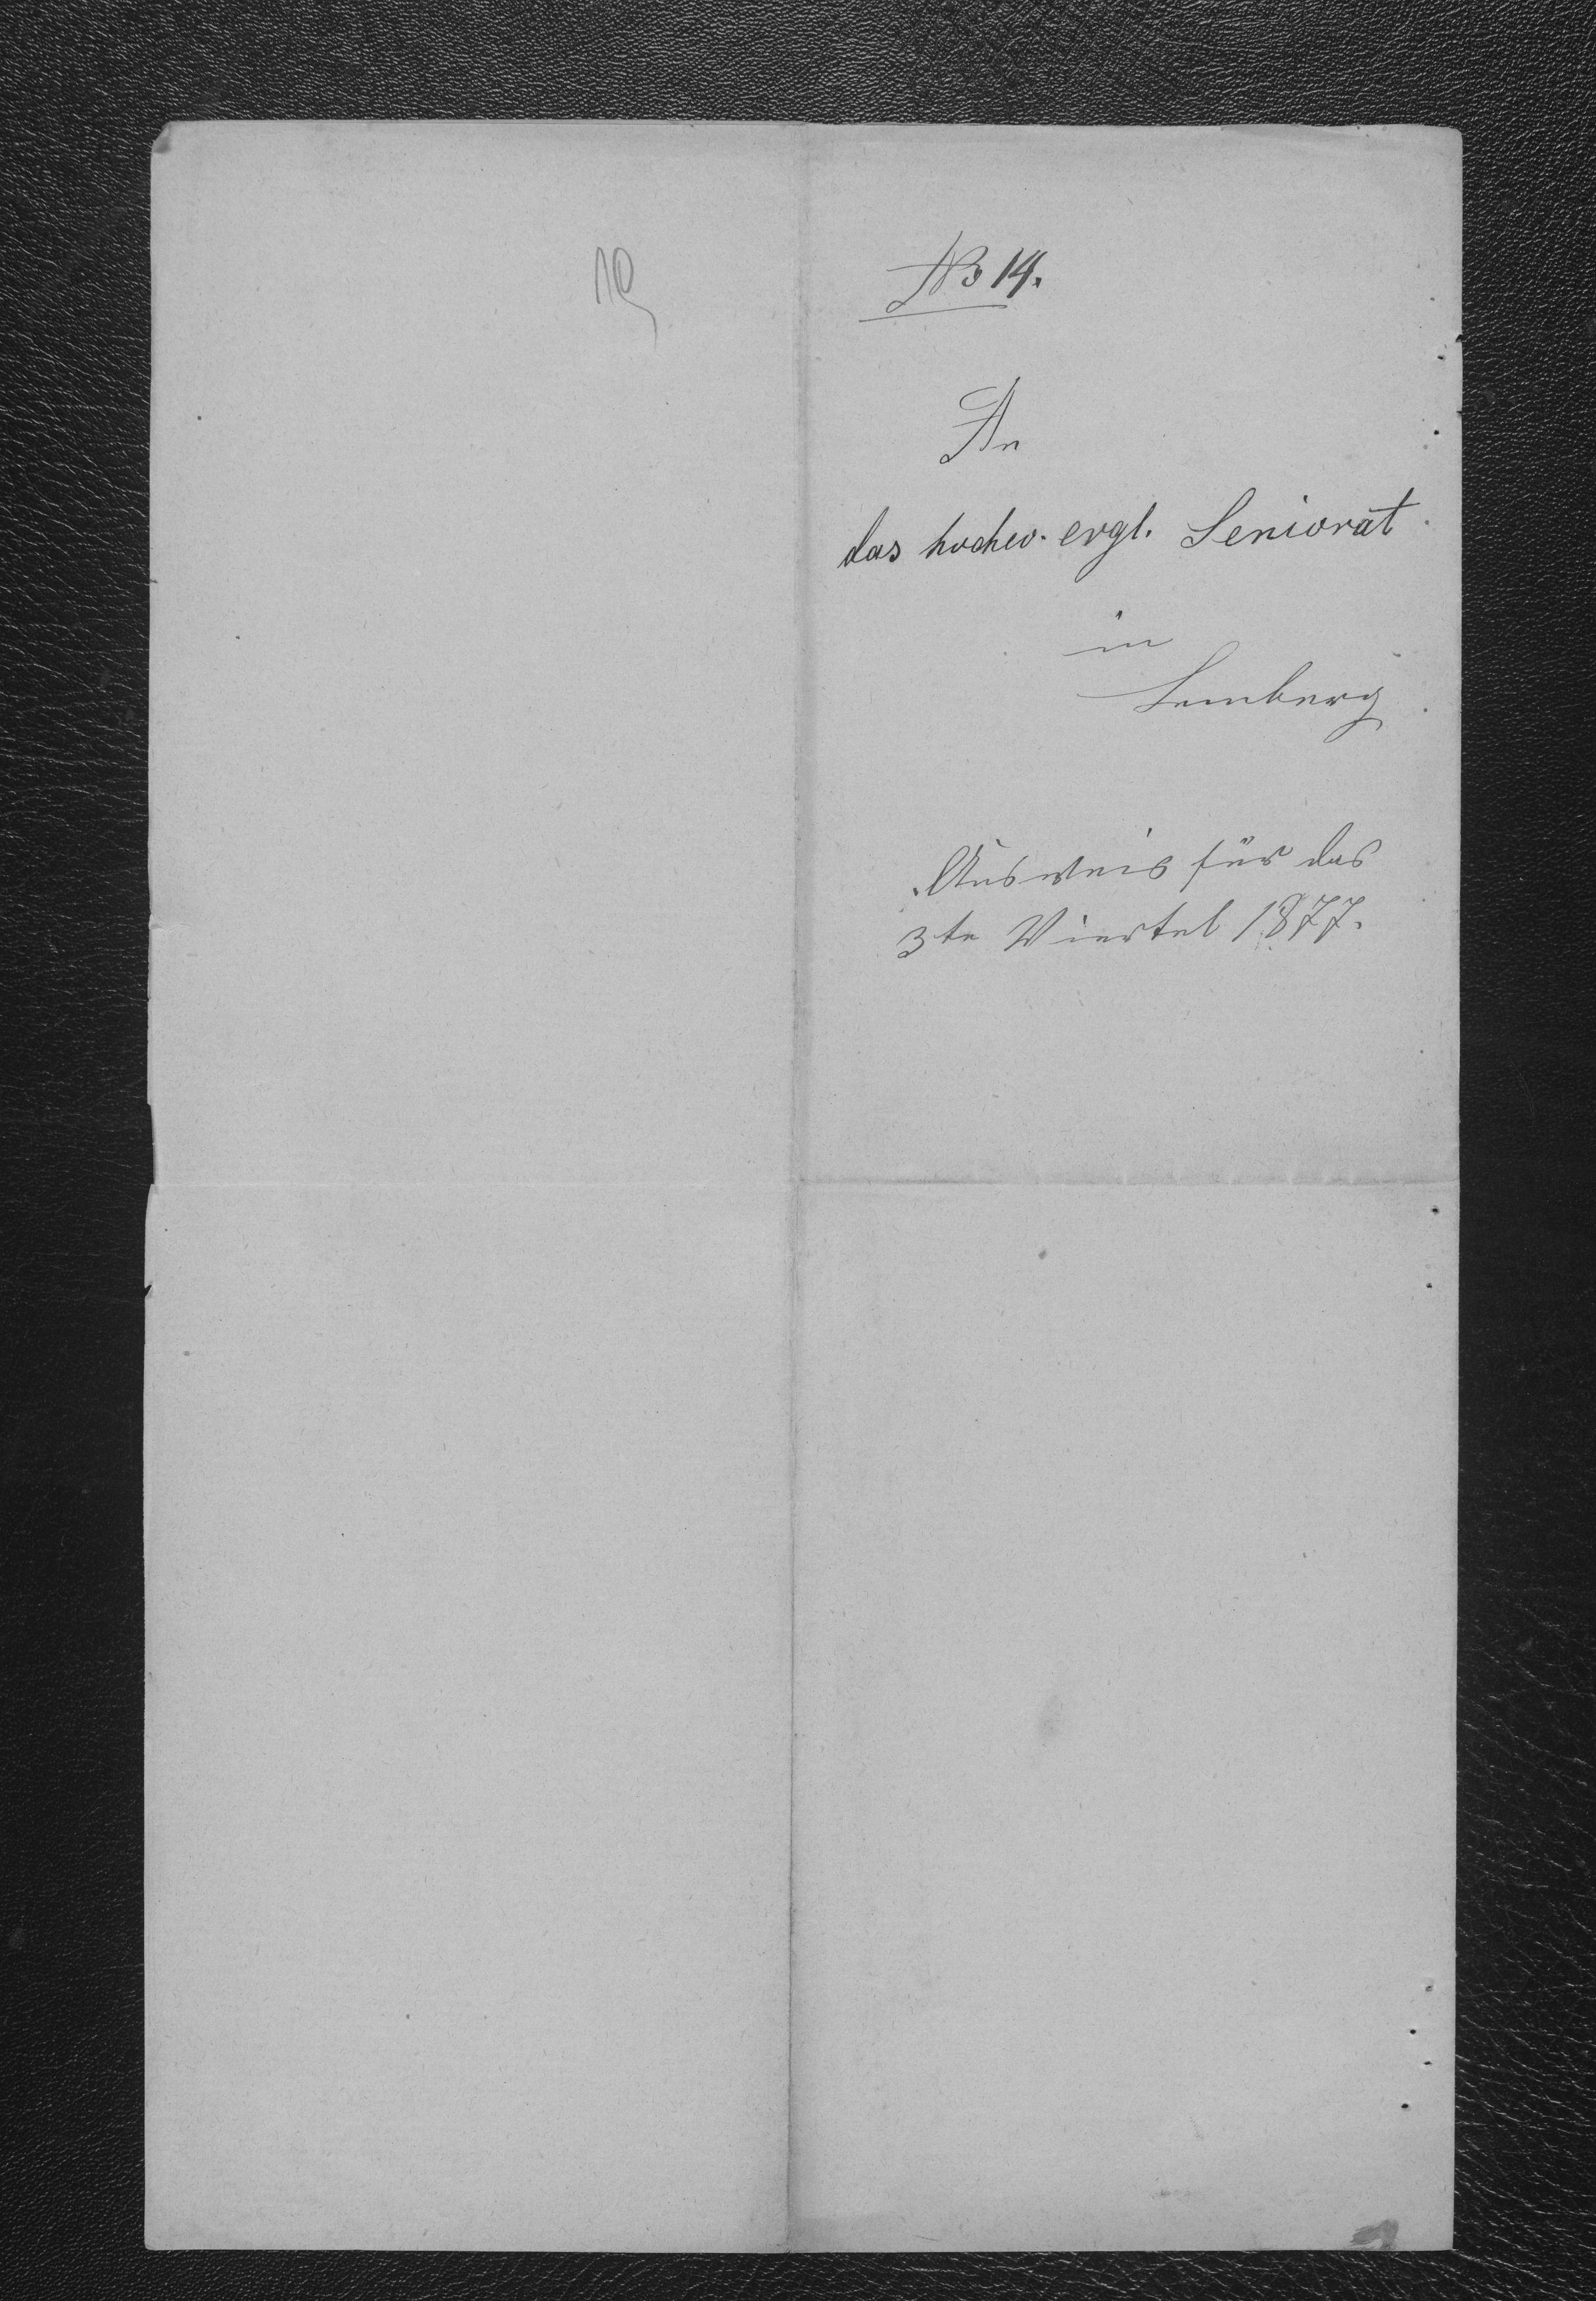 No 14.
An
das hochw. evgl. Seniorat
in
Lemberg
Ausweis für das
3te Viertel 1877.